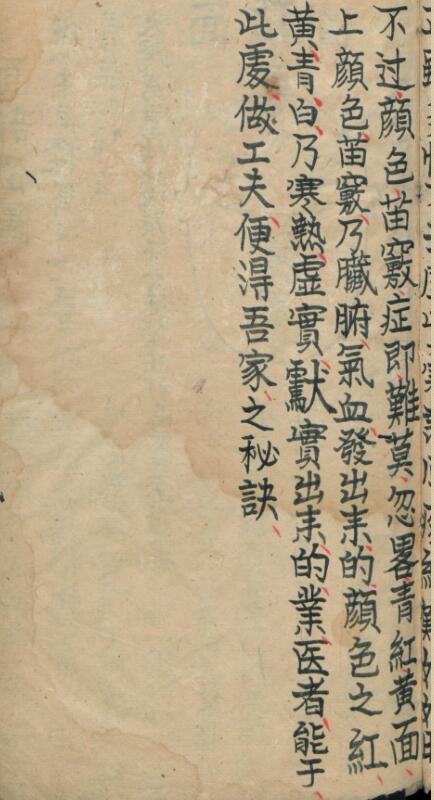 不过顔色苗竅症即難莫忽畧青紅黄面
上顔色苗竅乃臓腑氣血發出耒的顔色之紅
黄青白乃寒熱虚實獻實出耒的業医者能于
此處做工夫便得吾家之秘訣